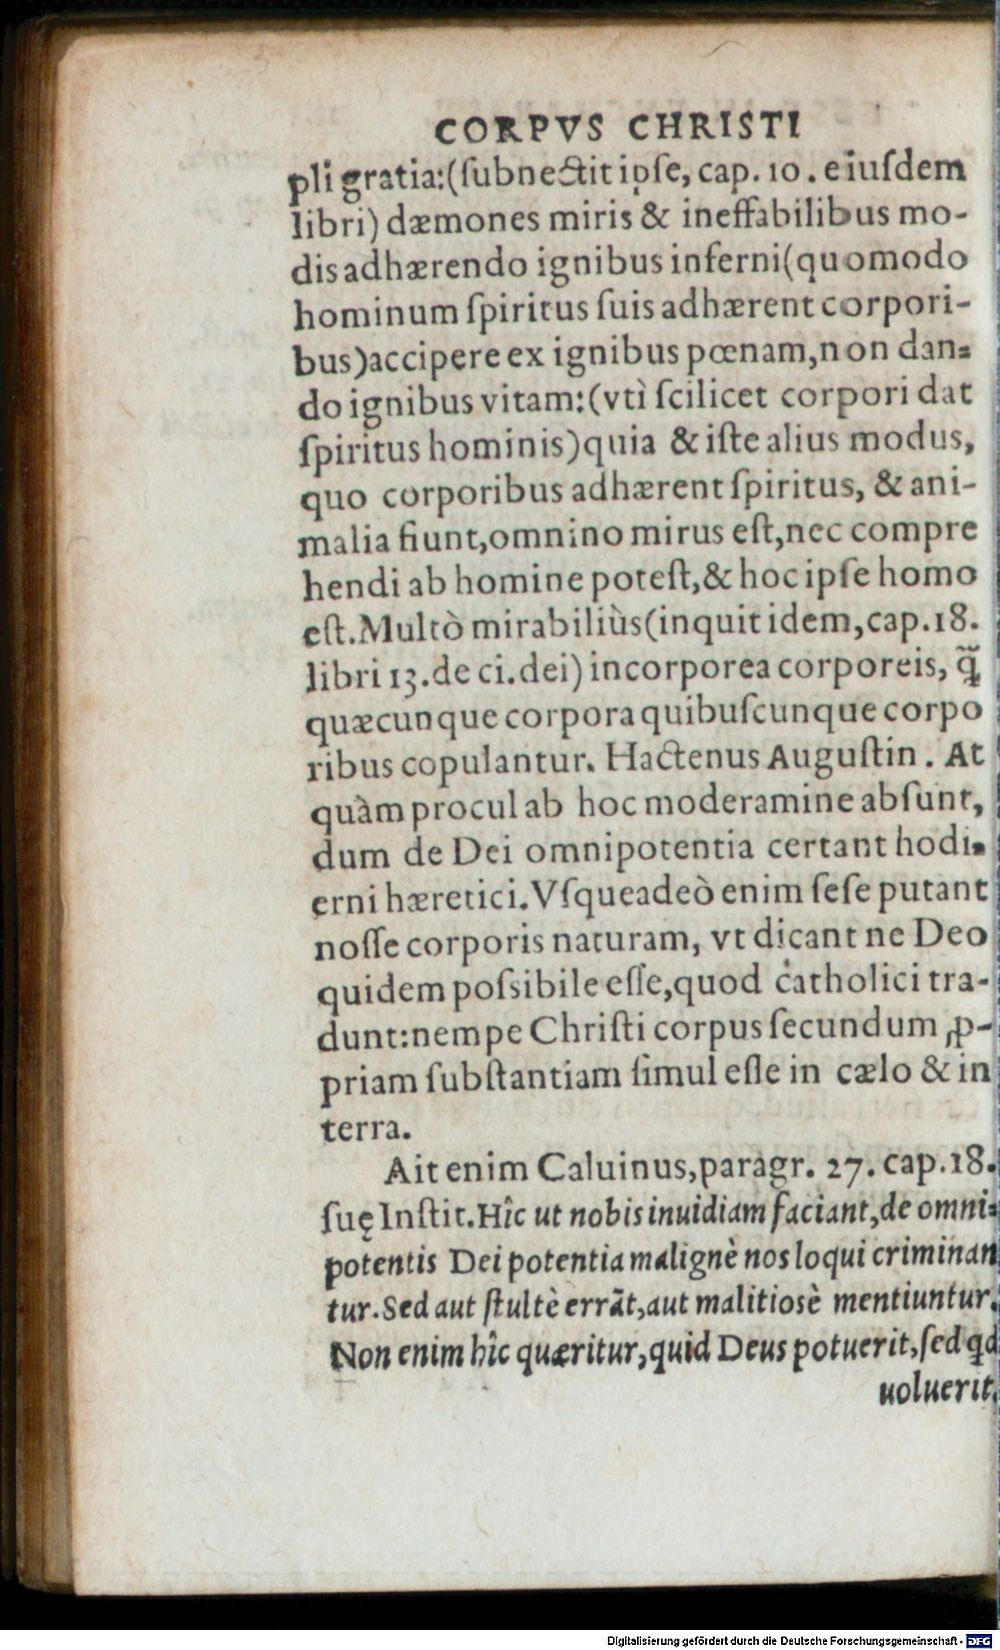 CORPVS CHRISTI
pli gratia:(ſubnectit ipſe, cap. 10. eiuſdem
libri) dæmones miris & ineffabilibus mo-
dis adhærendo ignibus inferni(quomodo
hominum ſpiritus ſuis adhærent corpori-
bus)accipere ex ignibus pœnam,non dan=
do ignibus vitam:(vtì ſcilicet corpori dat
ſpiritus hominis)quia & iſte alius modus,
quo corporibus adhærent ſpiritus, & ani-
malia fiunt,omnino mirus eſt,nec compre
hendi ab homine poteſt,& hoc ipſe homo
eſt.Multò mirabiliùs(inquit idem,cap.18.
libri 13.de ci.dei) incorporea corporeis, q̃
quæcunque corpora quibuſcunque corpo
ribus copulantur. Hactenus Auguſtin. At
quàm procul ab hoc moderamine abſunt,
dum de Dei omnipotentia certant hodi=
erni hæretici.Vſqueadeò enim ſeſe putant
noſſe corporis naturam, vt dicant ne Deo
quidem poſsibile eſſe,quod catholici tra-
dunt:nempe Chriſti corpus ſecundum ꝓ-
priam ſubſtantiam ſimul eſſe in cælo & in
terra.
Ait enim Caluinus,paragr. 27. cap.18.
ſuę Inſtit.Hîc ut nobis inuidiam faciant,de omni=
potentis Dei potentia malignè nos loqui criminan
tur.Sed aut ſtultè errãt,aut malitiosè mentiuntur.
Non enim hîc quæritur,quid Deus potuerit,ſed qd
uoluerit.
Digitalisierung gefördert durch die Deutsche Forschungsgemeinschaft - DFG